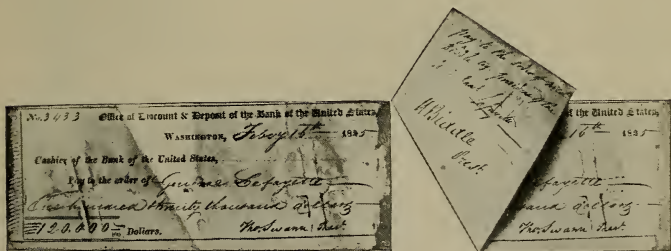 No. 3433 Office of Discount & Deposit of the Bank of the United States,
WASHINGTON, Feby 16th 1825
Cashier of the Bank of the United States,
Pay to the order of General Lafayette
One hundred twenty thousand dollars
$120,000 Dollars. Tho. Swann Prest.
Pay to the order of
Lafayette
N Biddle
Prest.
of the United States,
16th 1825
fayette
sand dollars
Tho. Swann Prest.